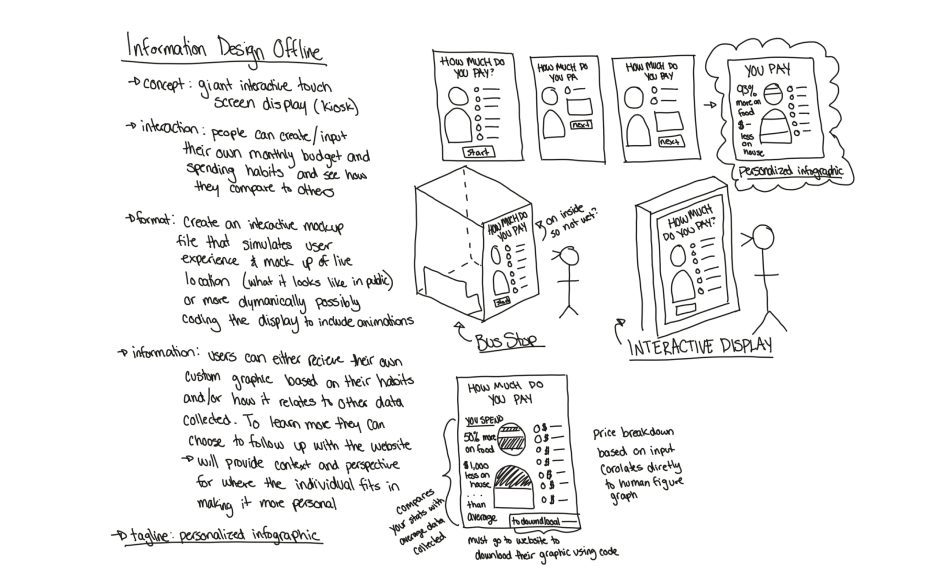 Information Design Offline
→ concept: giant interactive touch
screen display (kiosk)
→ interaction: people can create/input
their own monthly budget and
spending habits and see how
they compare to others
→ format: Create an interactive mockup
file that simulates user
experience & mock up of live
location (what it looks like in public)
or more dymanically possibly
coding the display to include animations
→ information: users can either recieve their own
custom graphic based on their habits
and/or how it relates to other data
collected. To learn more they can
choose to follow up with the website
→ will provide context and perspective
for where the individual fits in
making it more personal
→ tagline: personalized infographic
HOW MUCH DO
YOU PAY?
start
HOW MUCH DO
YOU PA
next
HOW MUCH DO
YOU PAY
next
YOU PAY
93%
more on
food
$ —
less
on
house
personalized infographic
HOW MUCH DO
YOU PAY
start
on inside
so not wet?
Bus Stop
HOW MUCH
DO YOU PAY?
INTERACTIVE DISPLAY
HOW MUCH DO
YOU PAY
YOU SPEND
50% more
on food
$1,000
less on
house
...
than
average
$
$
$
$
$
$
$
to download go to
compares
your stats with
average data
collected
must go to website to
download their graphic using code
Price breakdown
based on input
corolates directly
to human figure
graph